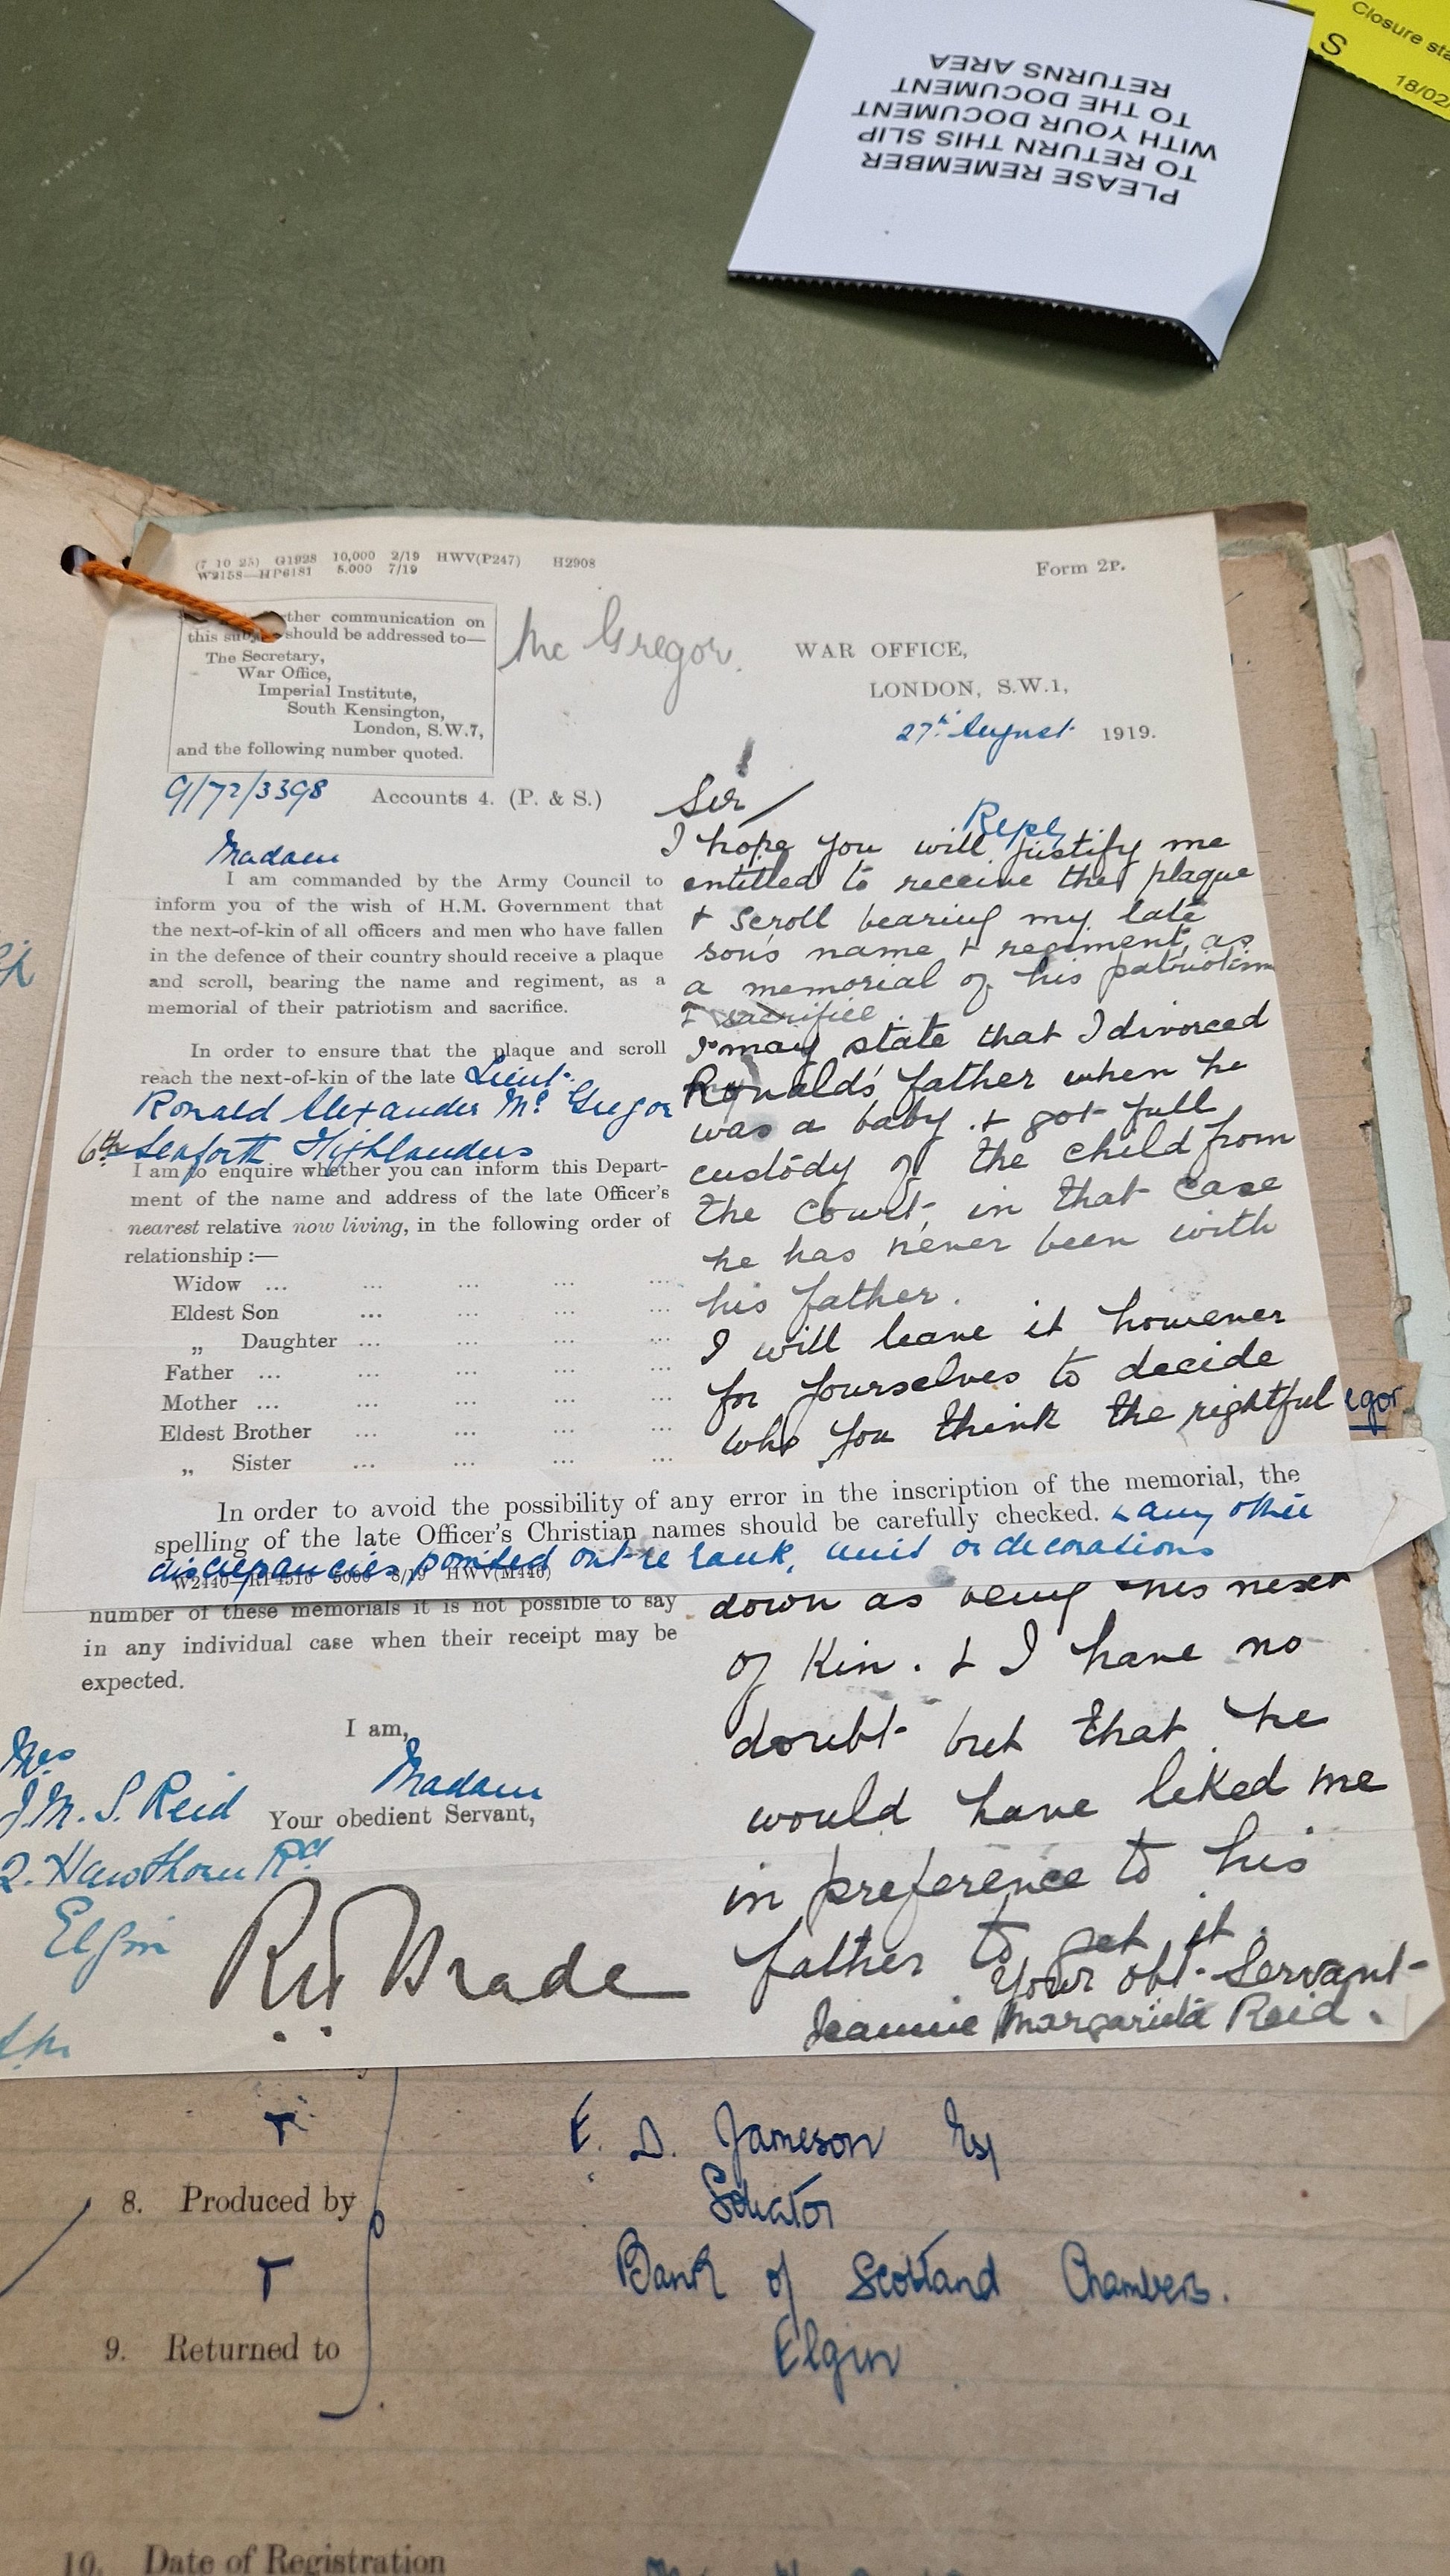 PLEASE REMEMBER
TO RETURN THIS SLIP
WITH YOUR DOCUMENT
TO THE DOCUMENT
RETURNS AREA
Closure sta
S
18/02/
(7 10 25) G1928 10,000 2/19 HWV(P247) H2908
W2158—HP6181 5,000 7/19
Form 2P.
ther communication on
this should be addressed to—
The Secretary,
War Office,
Imperial Institute,
South Kensington,
London, S.W.7,
and the following number quoted.
Mc Gregor.
WAR OFFICE,
LONDON, S.W.1,
27th August 1919.
9/72/3398 Accounts 4. (P. & S.)
Madam
I am commanded by the Army Council to
inform you of the wish of H.M. Government that
the next-of-kin of all officers and men who have fallen
in the defence of their country should receive a plaque
and scroll, bearing the name and regiment, as a
memorial of their patriotism and sacrifice.
In order to ensure that the plaque and scroll
reach the next-of-kin of the late Lieut.
Ronald Alexander Mc Gregor
6th Seaforth Highlanders
I am to enquire whether you can inform this Depart-
ment of the name and address of the late Officer's
nearest relative now living, in the following order of
relationship :—
Widow ... ... ... ... ...
Eldest Son ... ... ... ...
„ Daughter ... ... ... ...
Father ... ... ... ... ...
Mother ... ... ... ... ...
Eldest Brother ... ... ... ...
„ Sister ... ... ... ...
In order to avoid the possibility of any error in the inscription of the memorial, the
spelling of the late Officer's Christian names should be carefully checked. & any other
discrepancies pointed out re rank, unit or decorations
W2440—RP4510 5000 8/19 HWV(M440)
number of these memorials it is not possible to say
in any individual case when their receipt may be
expected.
I am,
Madam
Your obedient Servant,
Mrs
J.M.S. Reid
2. Hawthorn Rd
Elgin
Reply
Sir/
I hope you will justify me
entitled to receive the plaque
& scroll bearing my late
son's name & regiment, as
a memorial of his patriotism
& sacrifice.
I may state that I divorced
Ronald's father when he
was a baby & got full
custody of the child from
the Court, in that case
he has never been with
his father.
I will leave it however
for yourselves to decide
who you think the rightful
down as being his next
of Kin. & I have no
doubt but that he
would have liked me
in preference to his
father to get it.
Your obt. Servant
Jeannie Margarieta Reid.
egor
E. D. Jameson Esq
Solicitor
8. Produced by
T
Bank of Scotland Chambers.
9. Returned to
Elgin
10. Date of Registration